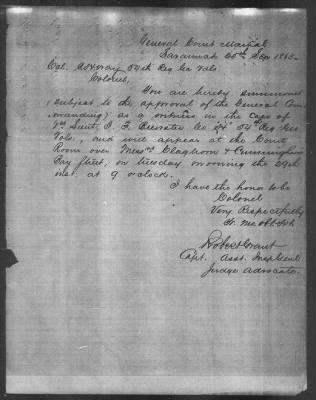 General Court Martial
Savannah 25th Sep 1863
Col. Way 54th Reg Ga Vols
Colonel,
You are hereby summoned
(subject to the approval of the General Com
manding) as a witness in the case of
Lieut. Co 54th Reg Geo
Vols, and will appear at the Court
Room over Messrs Claghorn & Cunningham
Bay Street, on tuesday morning the 29th
inst. at 9 oclock.
I have the honor to be
Colonel
Very Respectfully
Yr. Obt
Robert Grant
Capt. Asst. Insp Genl
Judge Advocate